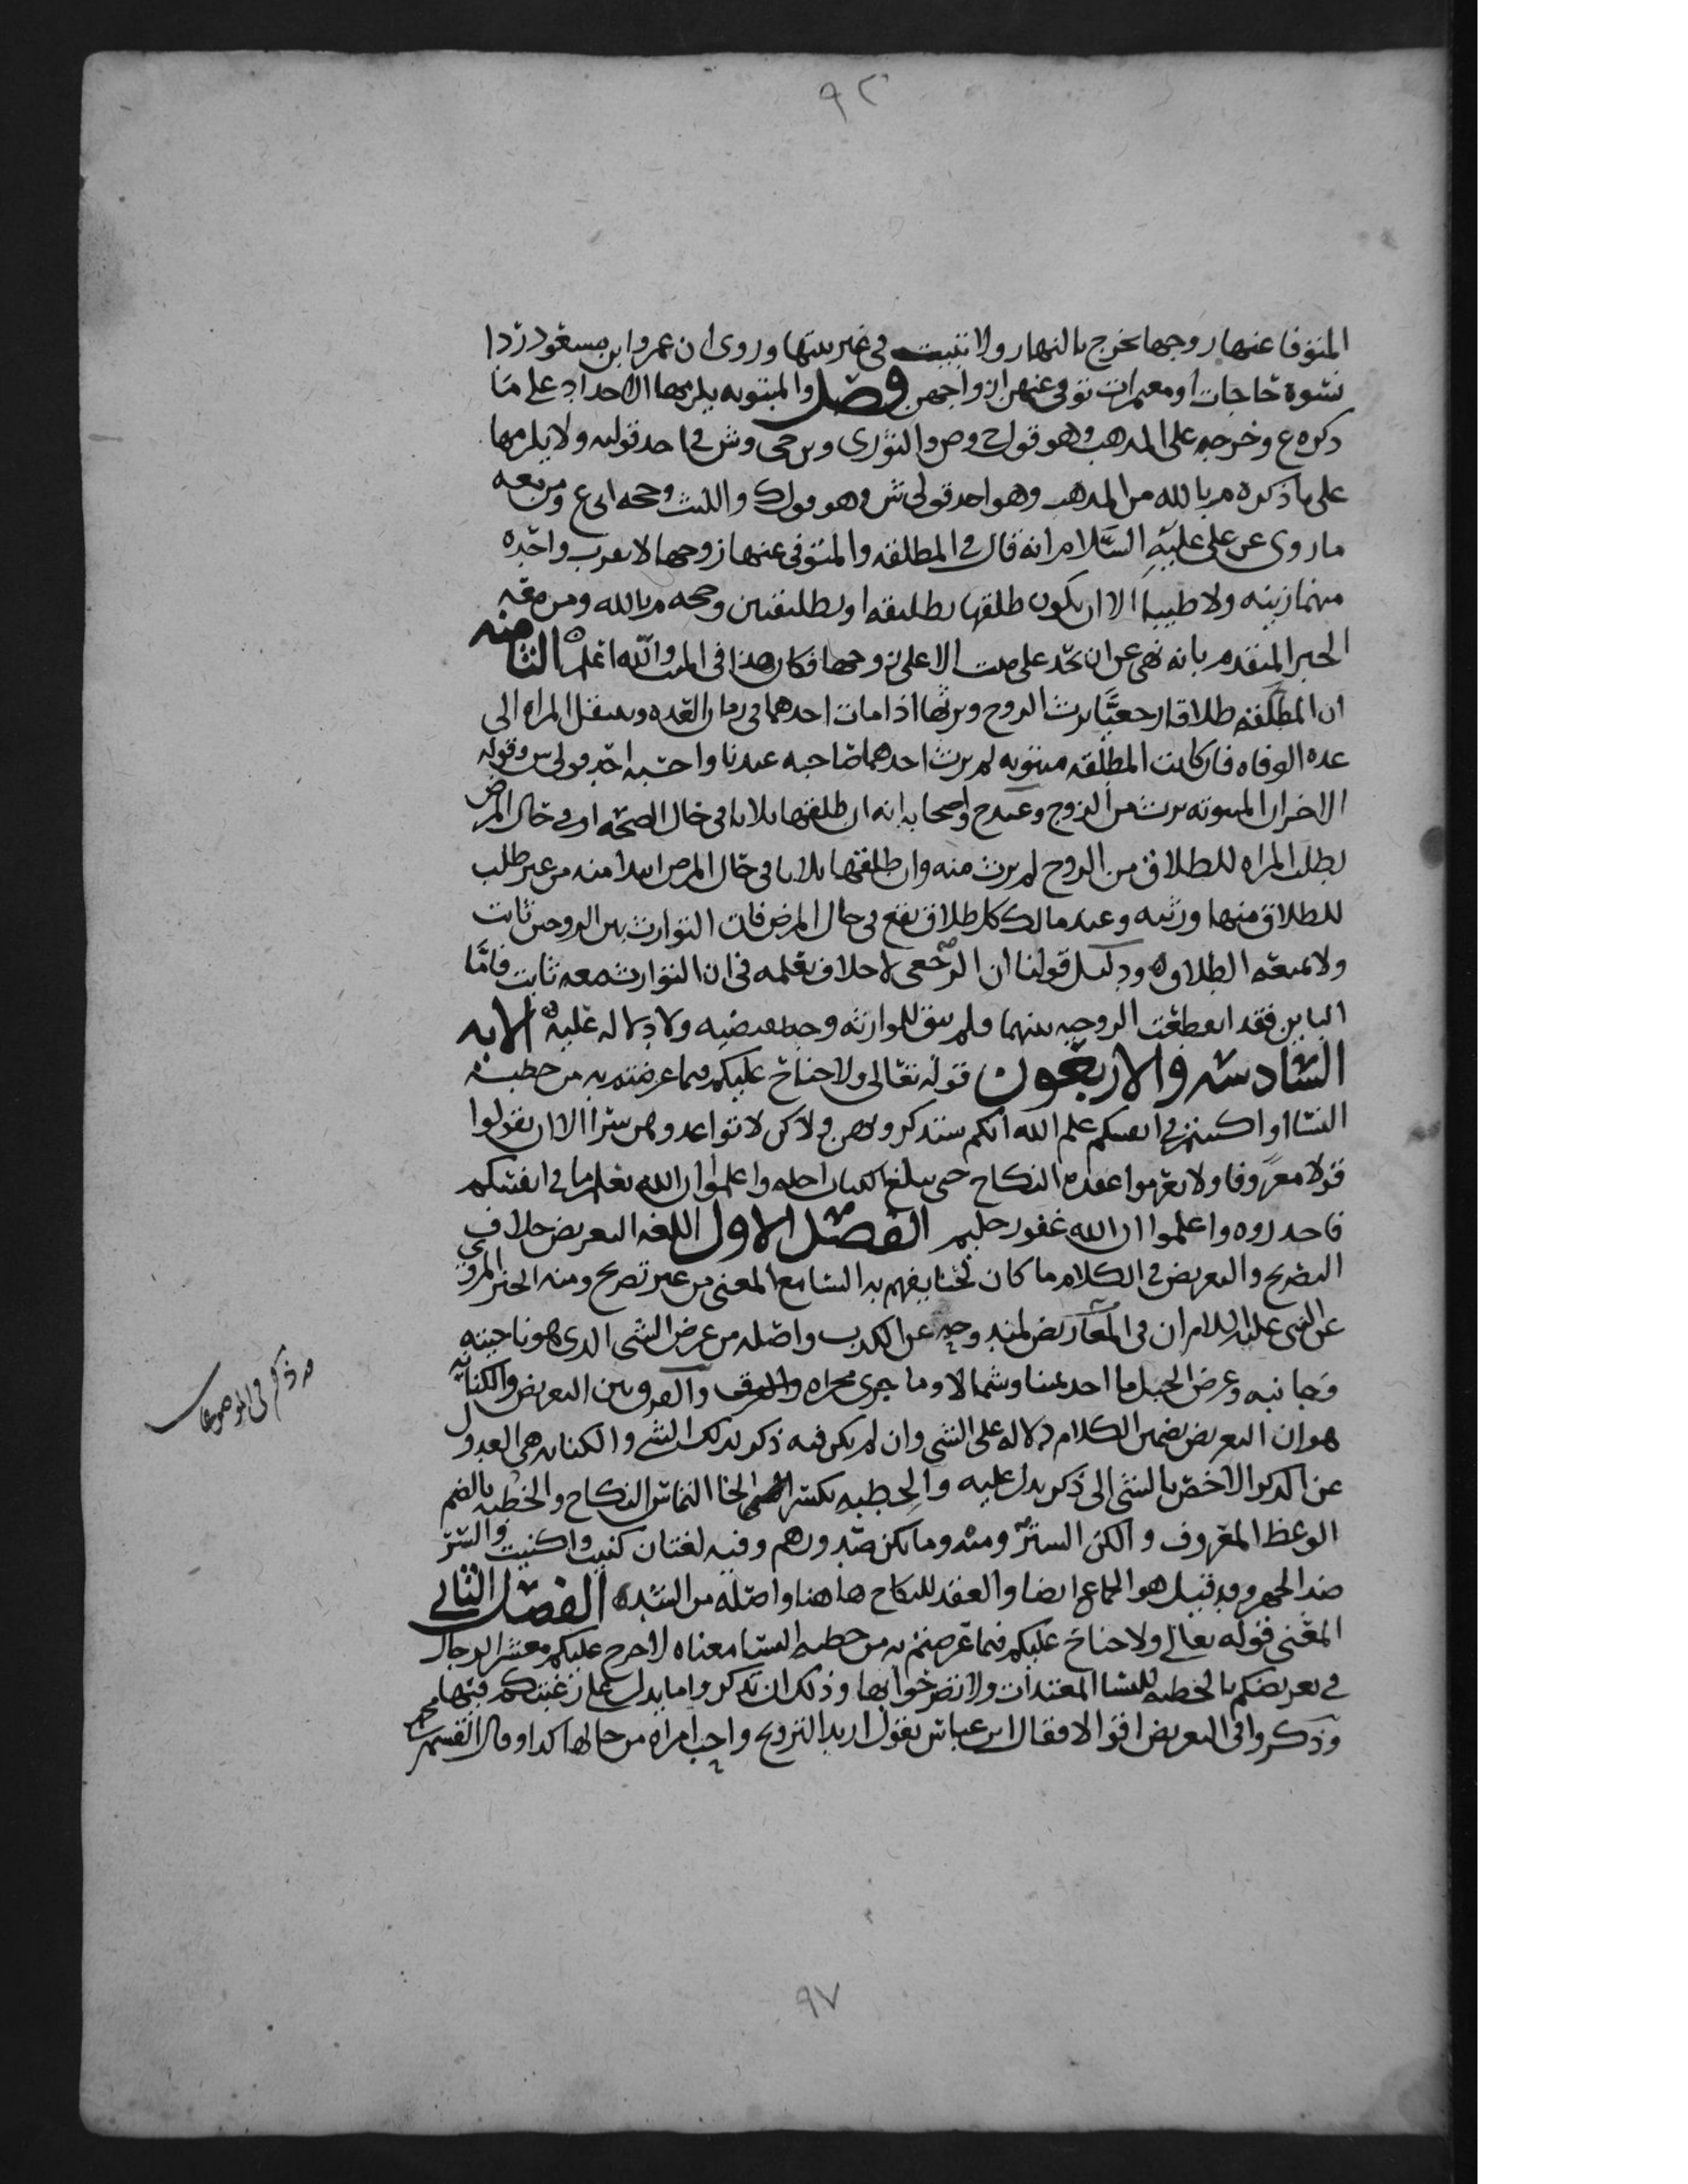 ٩٢
المتوفا عنها زوجها تخرج بالنهار ولا تبيت في غير بيتها وروي ان عمر وابن مسعود ردا
نسوة حاجات او معتمرات توفي عنهن ازواجهن فصل والمبتوته يلزمها الاحداد على ما
ذكره ع وخرجه على المذهب وهو قول ح وص والثوري وبن حي وش في احد قوليه ولا يلزمها
على ما ذكره م بالله من المذهب وهو احد قولي ش وهو قول ك والليث وجحه ابي ع ومن معه
ما روي عن علي عليه السلام انه قال في المطلقه والمتوفى عنها زوجها لا تقرب واحده
منهما زينه ولا طيبا الا ان يكون طلقها تطليقه او تطليقتين وحجه م بالله ومن معه
الخبر المتقدم بانه نهى عن ان تحد على ميت الا على زوجها فكان هذا في الميت والله اعلم الثامنه
ان المطلقه طلاقا رجعيا يرث الزوج ويرثها اذا مات احدهما في زمان العده وتنتقل المراه الى
عده الوفاه فان كانت المطلقه مبتوته لم يرث احدهما صاحبه عندنا واحسبه احد قولي ش وقوله
الاخر ان المبتوته ترث من الزوج وعند ح واصحابه انه ان طلقها ثلاثا في حال الصحه او في حال المرض
بطلب المراه للطلاق من الزوج لم يرث منه وان طلقها ثلاثا في حال المرض ابتدا منه من غير طلب
للطلاق منها ورثته وعند مالك كل طلاق يقع في حال المرض فان التوارث بين الزوجين ثابت
ولا يمنعه الطلاق ودليل قولنا ان الرجعي لا خلاف نعلمه في ان التوارث معه ثابت فاما
الباين فقد انقطعت الزوجيه بينهما ولم يبق للموارثه وجه يقتضيه ولا دلاله عليه الايه
السادسه والاربعون قوله تعالى ولا جناح عليكم فيما عرضتم به من خطبة
النسا او اكننتم في انفسكم علم الله انكم ستذكرونهن ولاكن لا تواعدوهن سرا الا ان تقولوا
قولا معروفا ولا تعزموا عقده النكاح حتى يبلغ الكتاب اجله واعلموا ان الله يعلم ما في انفسكم
فاحذروه واعلموا ان الله غفور حليم الفصل الاول اللغه التعريض خلاف
التصريح والتعريض في الكلام ما كان لحنا يفهم به السامع المعنى من غير تصريح ومنه الخبر المروي
عن النبي عليه السلام ان في المعاريض لمندوحه عن الكذب واصله من عرض الشي الذي هو ناحيته
وجانبه وعرض الجبل ما اخذ يمينا وشمالا وما جرى مجراه والفرق بين التعريض والكنايه
هو ان التعريض تضمين الكلام دلاله على الشي وان لم يكن فيه ذكر لذلك الشي والكنايه هي العدول
عن الذكر الاخص بالشي الى ذكر يدل عليه والخطبه بكسر الخا التماس النكاح والخطبه بالضم
الوعظ المعروف والكن الستر ومنه وما تكن صدورهم وفيه لغتان كننت واكننت والسر
ضد الجهر وقد قيل هو الجماع ايضا والعقد للنكاح هاهنا واصله من الشده الفصل الثاني
المعنى قوله تعالى ولا جناح عليكم فيما عرضتم به من خطبه النسا معناه لا حرج عليكم معشر الرجال
في تعريضكم بالخطبه للنسا المعتدات ولا تصرحوا بها وذلك ان تذكروا ما يدل على رغبتكم فيها
وذكروا في التعريض اقوالا فقال ابن عباس يقول اريد التزويج واحب امراه من حالها كذا وقال القسم بن محمد
ذكره في
٩٧